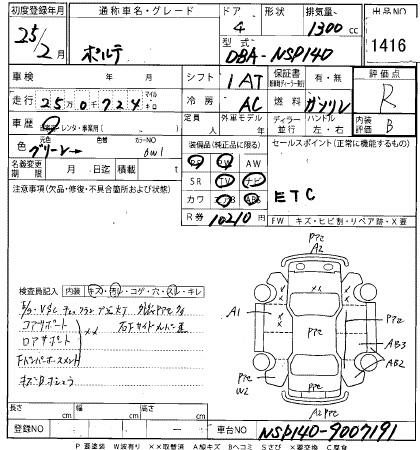 初度登録年月 通称車名・グレード ドア 形状 排気量 出品NO
25/2月 ポルテ 4 1300cc 1416
型式 DBA-NSP140
車検 年 月 シフト 1AT 保証書 有・無 評価点 R
走行 25万0千724 マイル キロ 冷房 AC 燃料 ガソリン
車歴 自家用・レンタ・事業用( ) 定員 人 外車モデル 年 ディーラー 並行 ハンドル 左・右 内装評価 B
色 グリーン 元色 色替 カラーNO 6W1 装備品(純正品に限る) セールスポイント(正常に機能するもの)
PS PW AW
名義変更期限 月 日 積載量 t SR TV ナビ
ETC
注意事項(欠品・修復・不具合箇所および状態) カワ エアB ABS
R券 10210円 FW キズ・ヒビ割・リペア跡・X要
検査員記入 内装 キズ・汚レ・コゲ・穴・スレ・キレ
コアサポート ××
ロアサポート
Fバンパーホースメント
A2
A1
AB3
AB2
W2
A2
長さ cm 幅 cm 高さ cm
登録NO 車台NO NSP140-9007191
P 要塗装 W波有り ××取替済 A線キズ Bヘコミ Sさび ×要交換 C腐食